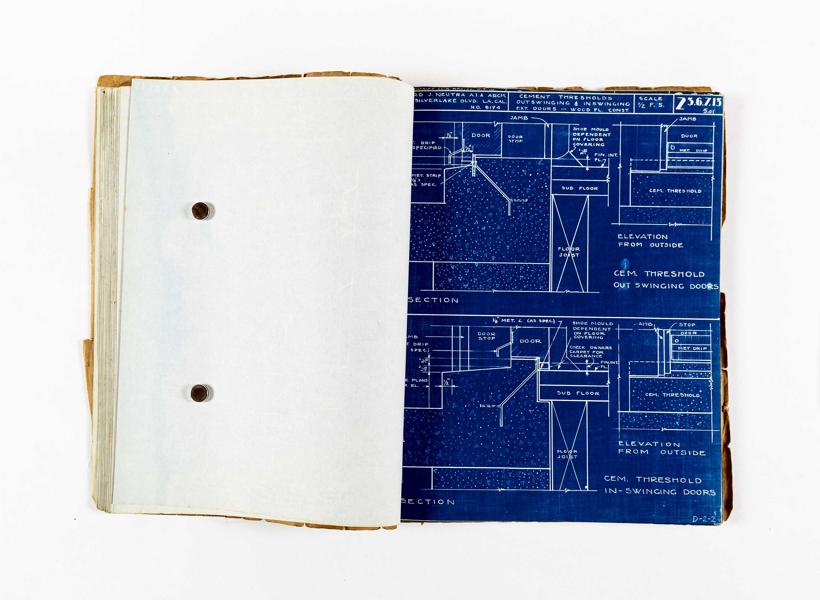 D J. NEUTRA A.I.A ARCH.
SILVERLAKE BLVD. LA. CAL.
NO. 8194
CEMENT THRESHOLDS
OUTSWINGING & INSWINGING
EXT. DOORS — WOOD FL. CONST.
SCALE
1/2 F. S.
JAMB
DOOR
DOOR
STOP
SHOE MOULD
DEPENDENT
ON FLOOR
COVERING
DRIP
SPECIFIED
FIN. INT.
FL.
MET. STRIP
AS SPEC.
SUB FLOOR
FLOOR
JOIST
SECTION
JAMB
DOOR
MET. DRIP
CEM. THRESHOLD
ELEVATION
FROM OUTSIDE
CEM. THRESHOLD
OUT SWINGING DOORS
1/8" MET. L (AS SPEC.)
DOOR
STOP
DOOR
SHOE MOULD
DEPENDENT
ON FLOOR
COVERING
CHECK OWNERS
CARPET FOR
CLEARANCE
MB
DRIP
SPEC)
PLANS
EL.
SUB FLOOR
FLOOR
JOIST
SECTION
JAMB
STOP
DOOR
MET DRIP
CEM. THRESHOLD
ELEVATION
FROM OUTSIDE
CEM. THRESHOLD
IN-SWINGING DOORS
D-2-2